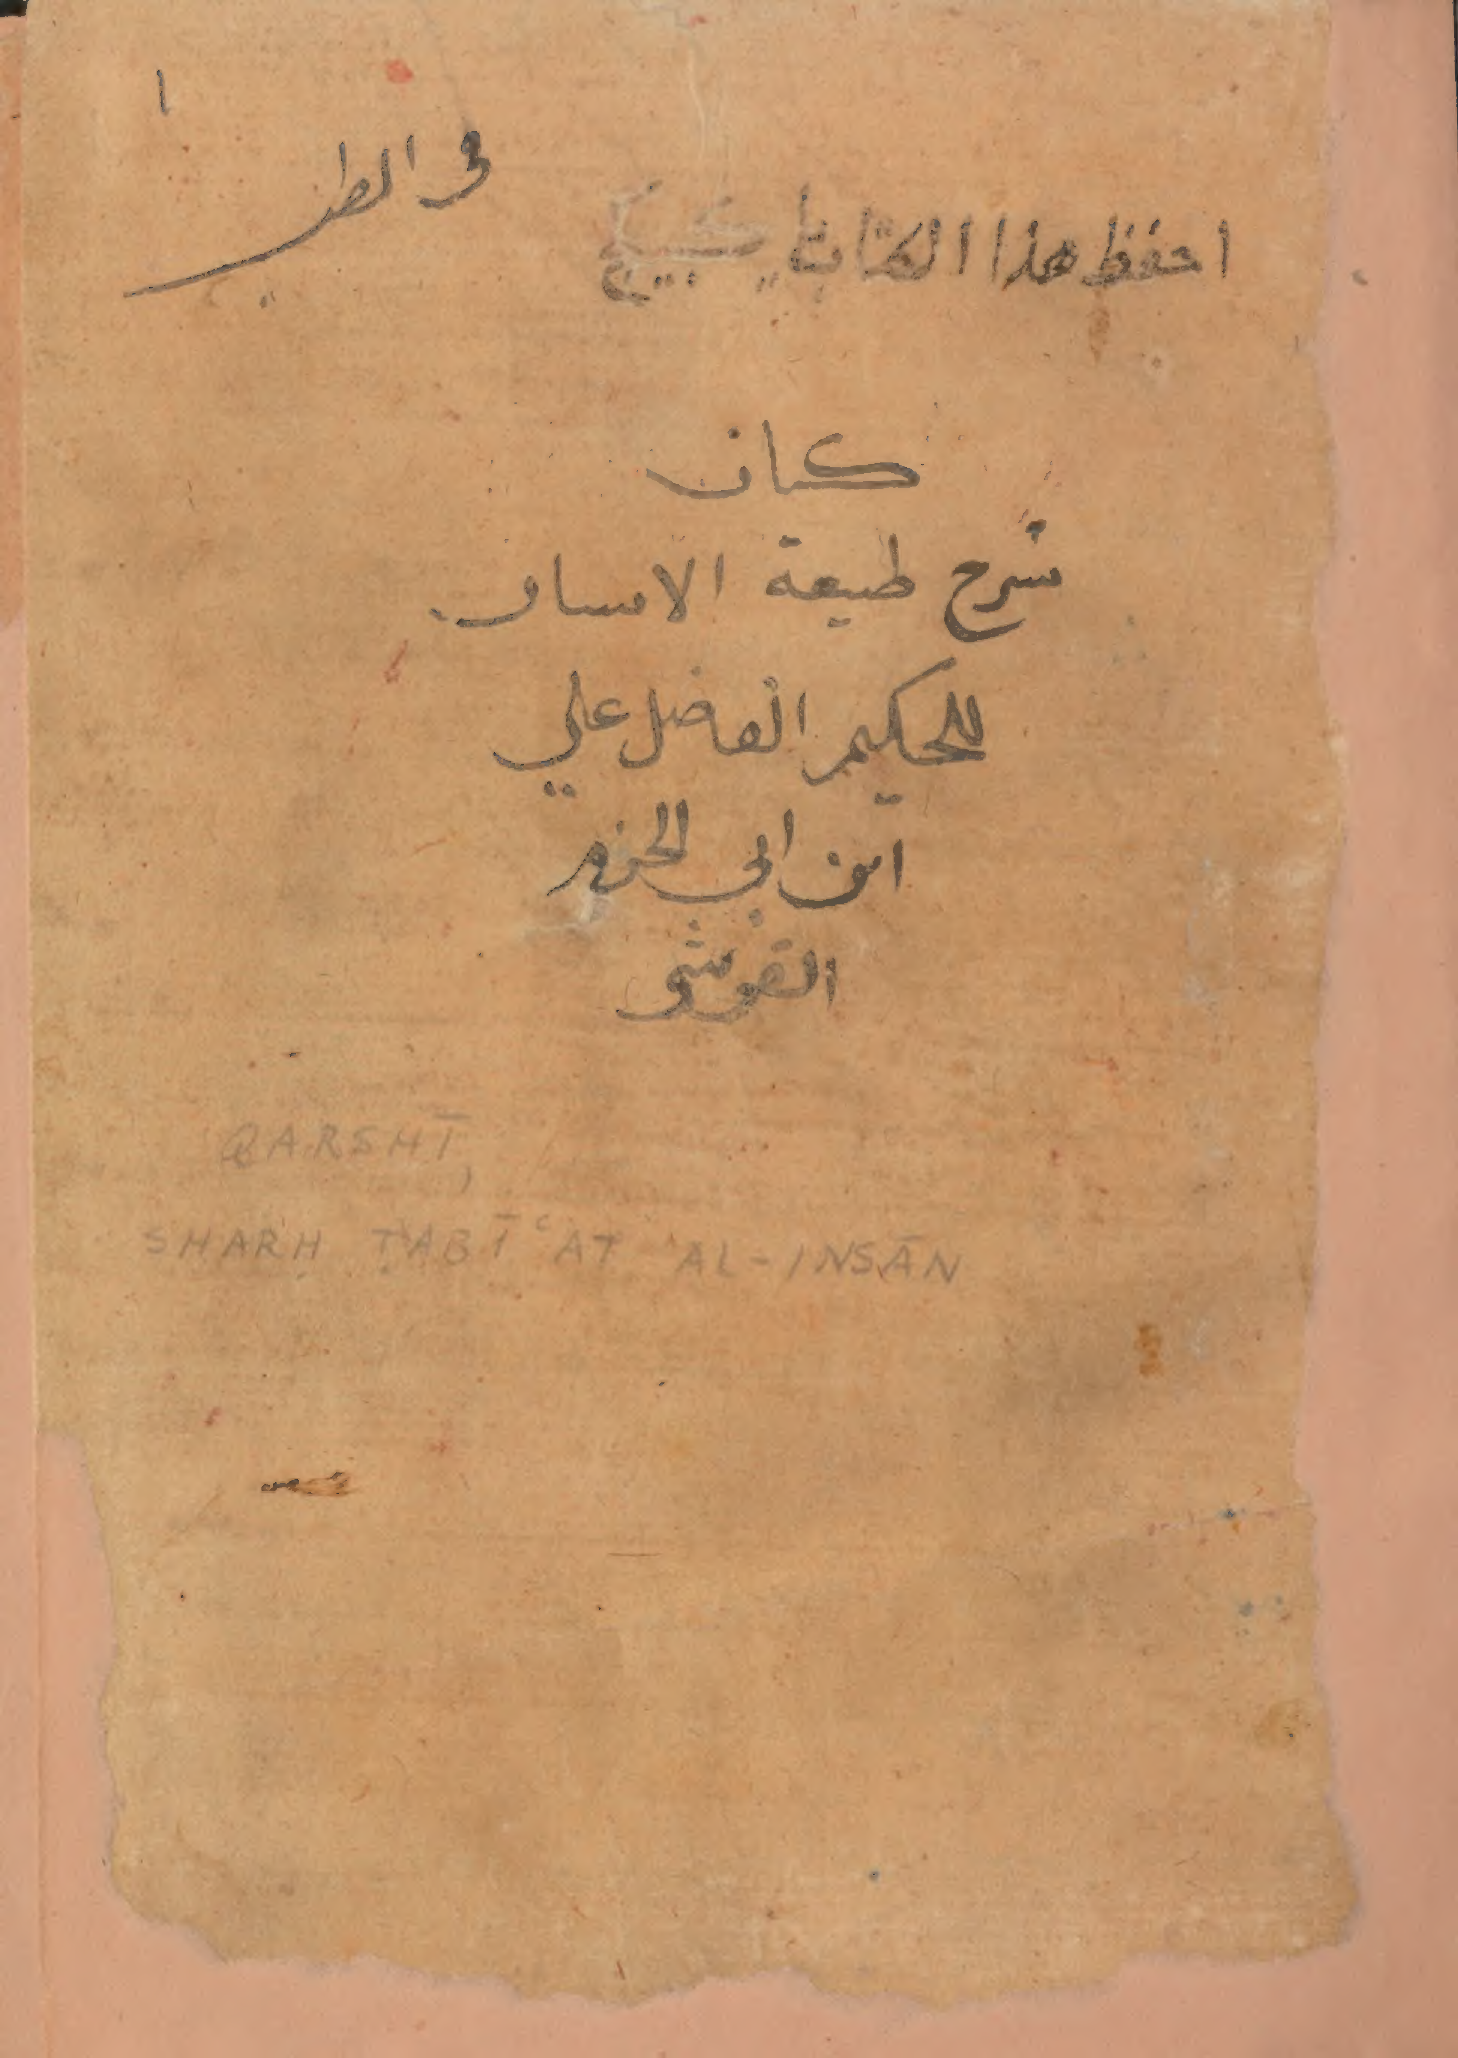 ١
في الطب
احفظ هذا الكتاب يا كبيكج
كتاب
شرح طبيعة الانسان
للحكيم الفاضل علي
ابن ابي الحزم
القرشي
QARSHĪ,
SHARḤ ṬABĪʿAT AL-INSĀN